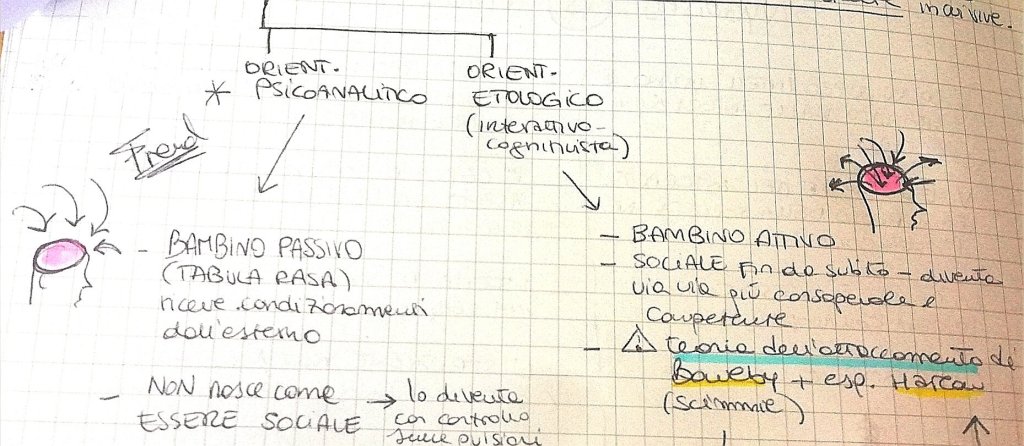 in cui vive.
ORIENT.
* PSICOANALITICO
ORIENT.
ETOLOGICO
(interattivo-
cognitivista)
Freud
- BAMBINO PASSIVO
(TABULA RASA)
riceve condizionamenti
dall'esterno
- NON nasce come
ESSERE SOCIALE
→ lo diventa
con controllo
sulle pulsioni
- BAMBINO ATTIVO
- SOCIALE fin da subito - diventa
via via più consapevole e
competente
- ⚠ teoria dell'attaccamento di
Bowlby + esp. Harlow
(scimmie)